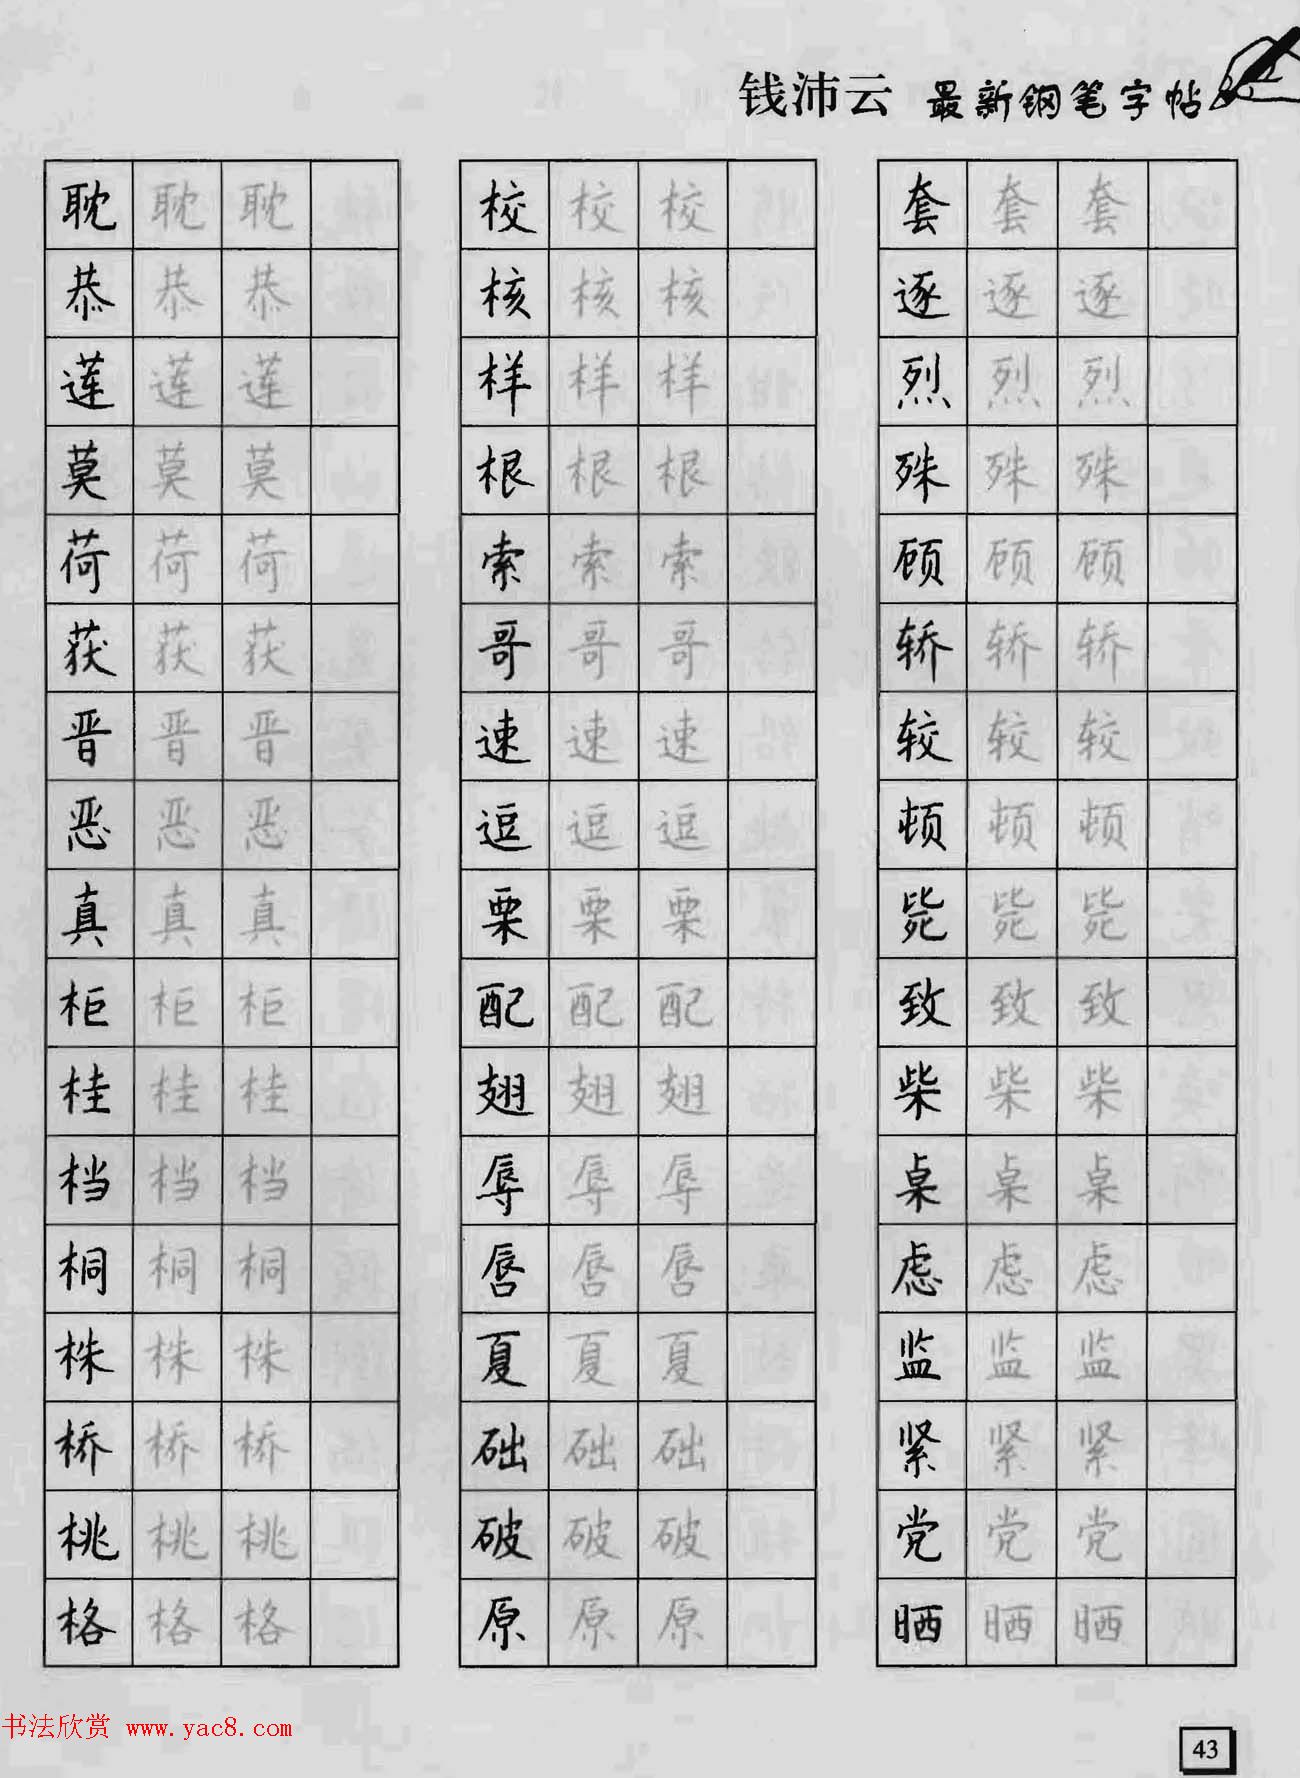 钱沛云 最新钢笔字帖
耽 耽 耽 校 校 校 套 套 套
恭 恭 恭 核 核 核 逐 逐 逐
莲 莲 莲 样 样 样 烈 烈 烈
莫 莫 莫 根 根 根 殊 殊 殊
荷 荷 荷 索 索 索 顾 顾 顾
获 获 获 哥 哥 哥 轿 轿 轿
晋 晋 晋 速 速 速 较 较 较
恶 恶 恶 逗 逗 逗 顿 顿 顿
真 真 真 栗 栗 栗 毙 毙 毙
柜 柜 柜 配 配 配 致 致 致
桂 桂 桂 翅 翅 翅 柴 柴 柴
档 档 档 辱 辱 辱 桌 桌 桌
桐 桐 桐 唇 唇 唇 虑 虑 虑
株 株 株 夏 夏 夏 监 监 监
桥 桥 桥 础 础 础 紧 紧 紧
桃 桃 桃 破 破 破 党 党 党
格 格 格 原 原 原 晒 晒 晒
书法欣赏 www.yac8.com
43